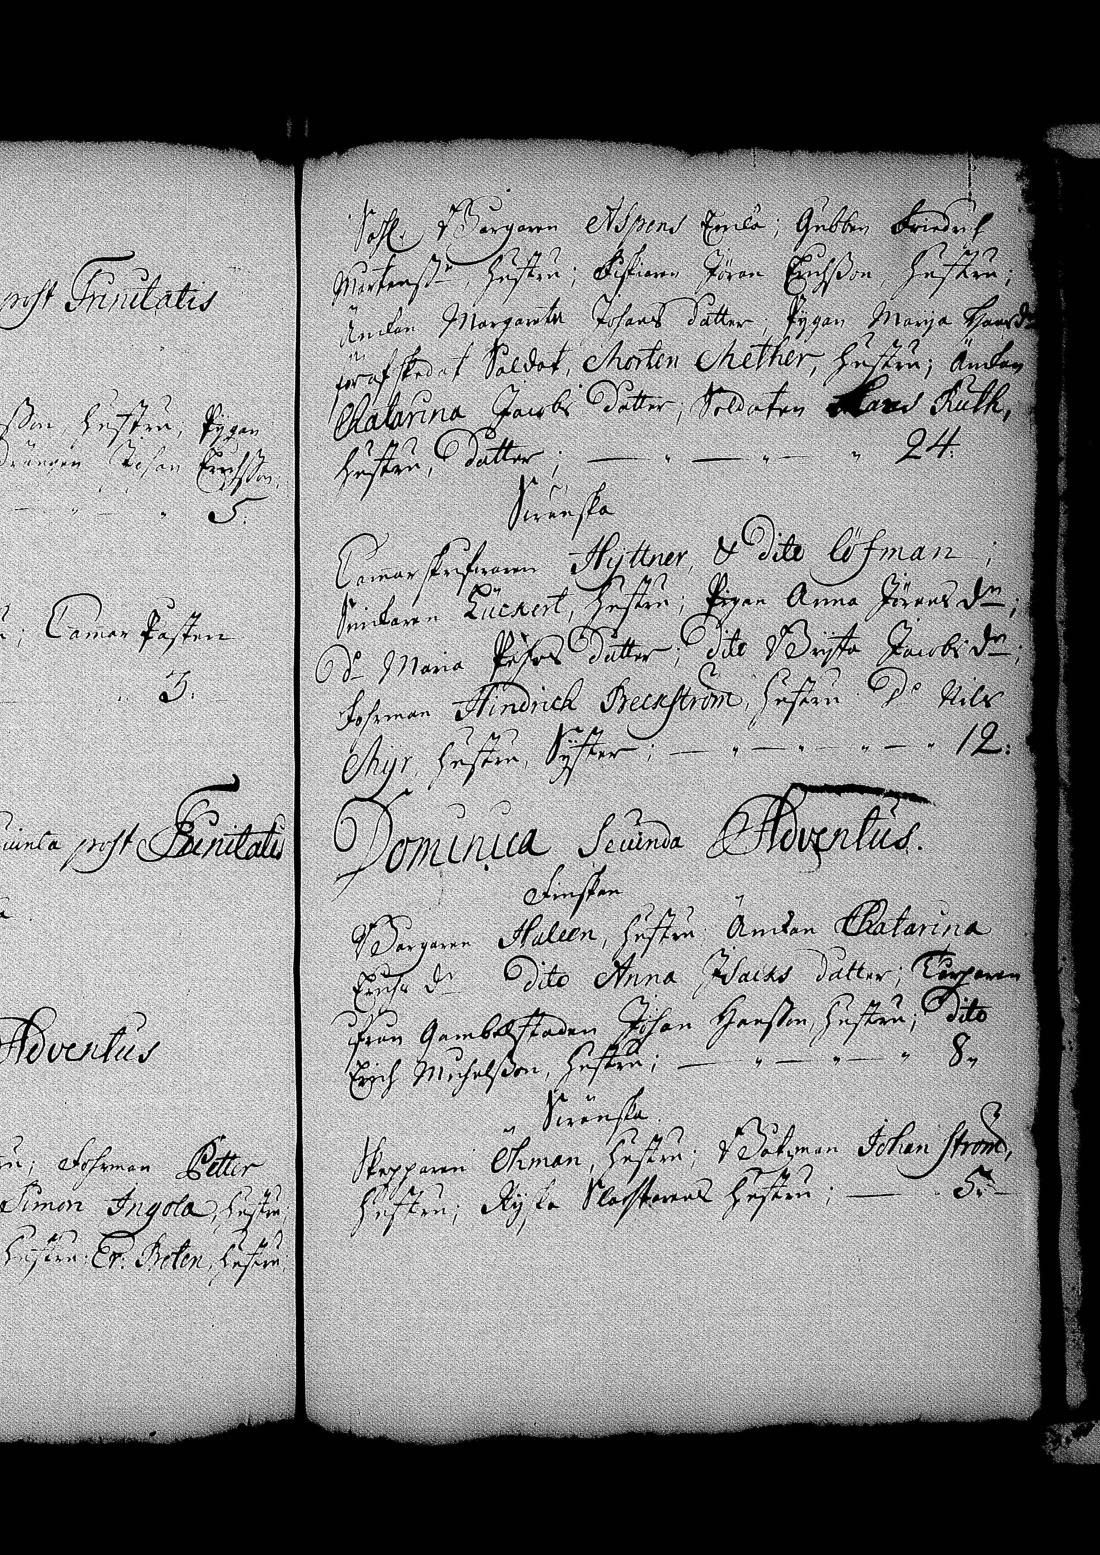 post Trinitatis
sson, hustru; Pygan
drängen Johan Erichsson;
5.
Camar Pasten
3.
quinta post Trinitatis
Adventus
Fohrman Petter
Simon Ingola, hustru;
hustru; Er: Boten, hustru
Borgaren Aspens Enka; Gubben Friedrich
Mortensson, hustru; Fiskaren Jöran Erichsson hustru;
Änkan Margareta Johans datter; Pygan Marija Hans dr
förafskedat Soldat, Morten Mether, hustru; Änkan
Catarina Jacobs datter; Soldaten Lars Ruth,
hustru, datter; — „ — „ — „ 24.
Swenska
Camarskrifwaren Hyttner, & dito Löfman;
Snikaren Lückert, hustru; Pigan Anna Jörans dr;
Do Maria Pehrs datter; dito Brijta Jacobs dr;
Fohrman Hindrich Beckström, hustru Do Nils
Myr, hustru, Syster; — „ — „ — „ — „ 12:
Dominica Secunda Adventus.
Finskan
Borgaren Haleen, hustru; Änkan Catarina
Erichs dr dito Anna Isacks datter; Torparen
från Gambelstaden Johan Hansson, hustru; dito
Erich Michelsson, hustru; — „ — „ — „ 8„
Swenska
Skepparen Öhman, hustru; Båtzman Johan Ström,
hustru; Ryska Slachtarens hustru; — 5:—